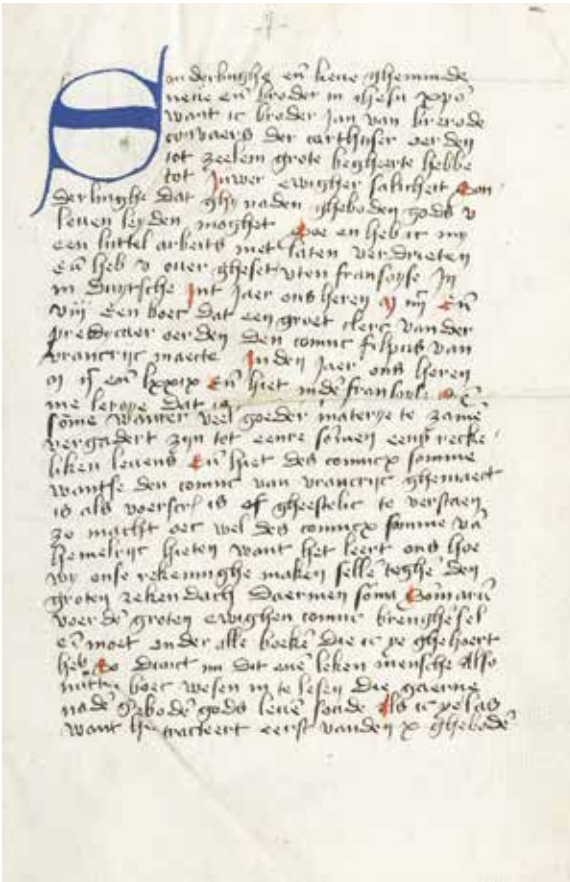 Sonderlinghe en̄ lieue gheminde
neue en̄ broder in ihesu xpō
want ic broder Jan van brerode
conuaers der carthuser oerden
tot zeelem grote begheerte hebbe
tot Juwer ewigher salicheit Son
derlinghe dat ghi naden gheboden gods v
leuen leyden moghet Soe en heb ic my
een luttel arbeits niet laten verdrieten
en̄ heb v ouer gheset vten fransoyse In
in duytsche Int Jaer ons heren M iiij en̄
viij Een boec dat een groet clerc van der
predicaer oerden den coninc philpus van
vrancrijc maecte In den Jaer ons heren
M ij en̄ lxxix En̄ hiet inde fransoyse
me leroye dat is
sōme wanter veel goeder materye te zamē
vergadert zijn tot eenre sōmen eens recke
liken leuens En̄ hiet des conincx somme
wantse den coninc van vrancrijc ghemaect
is als voerscr is of gheestelic te verstaen
zo macht oec wel des conincx somme vā
hemelrijc hieten want het leert ons hoe
wy onse rekeninghe maken selle teghē den
groten rekendach daermen
voer dē groten ewighen coninc brenghē sel
en̄ moet onder alle boekē die ic ye ghehoert
heb So dunct mi dit enē leken mensche also
nutten boec wesen in te lesen die gaerne
nadē ghebodē gods leuē soude als ic ye las
want het tracteert eerst vanden x ghebodē